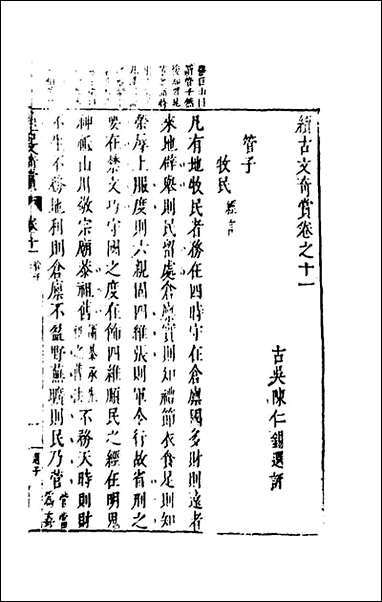 續古文奇賞卷之十一
古吳陳仁錫選評
管子
牧民 經言
凡有地牧民者務在四時守在倉廩國多財則遠者
來地辟舉則民留處倉廩實則知禮節衣食足則知
榮辱上服度則六親固四維張則軍令行故省刑之
要在禁文巧守國之度在飾四維順民之經在明鬼
神祇山川敬宗廟恭祖舊 不務天時則財
不生不務地利則倉廩不盈野蕪曠則民乃菅 菅當
卷十一